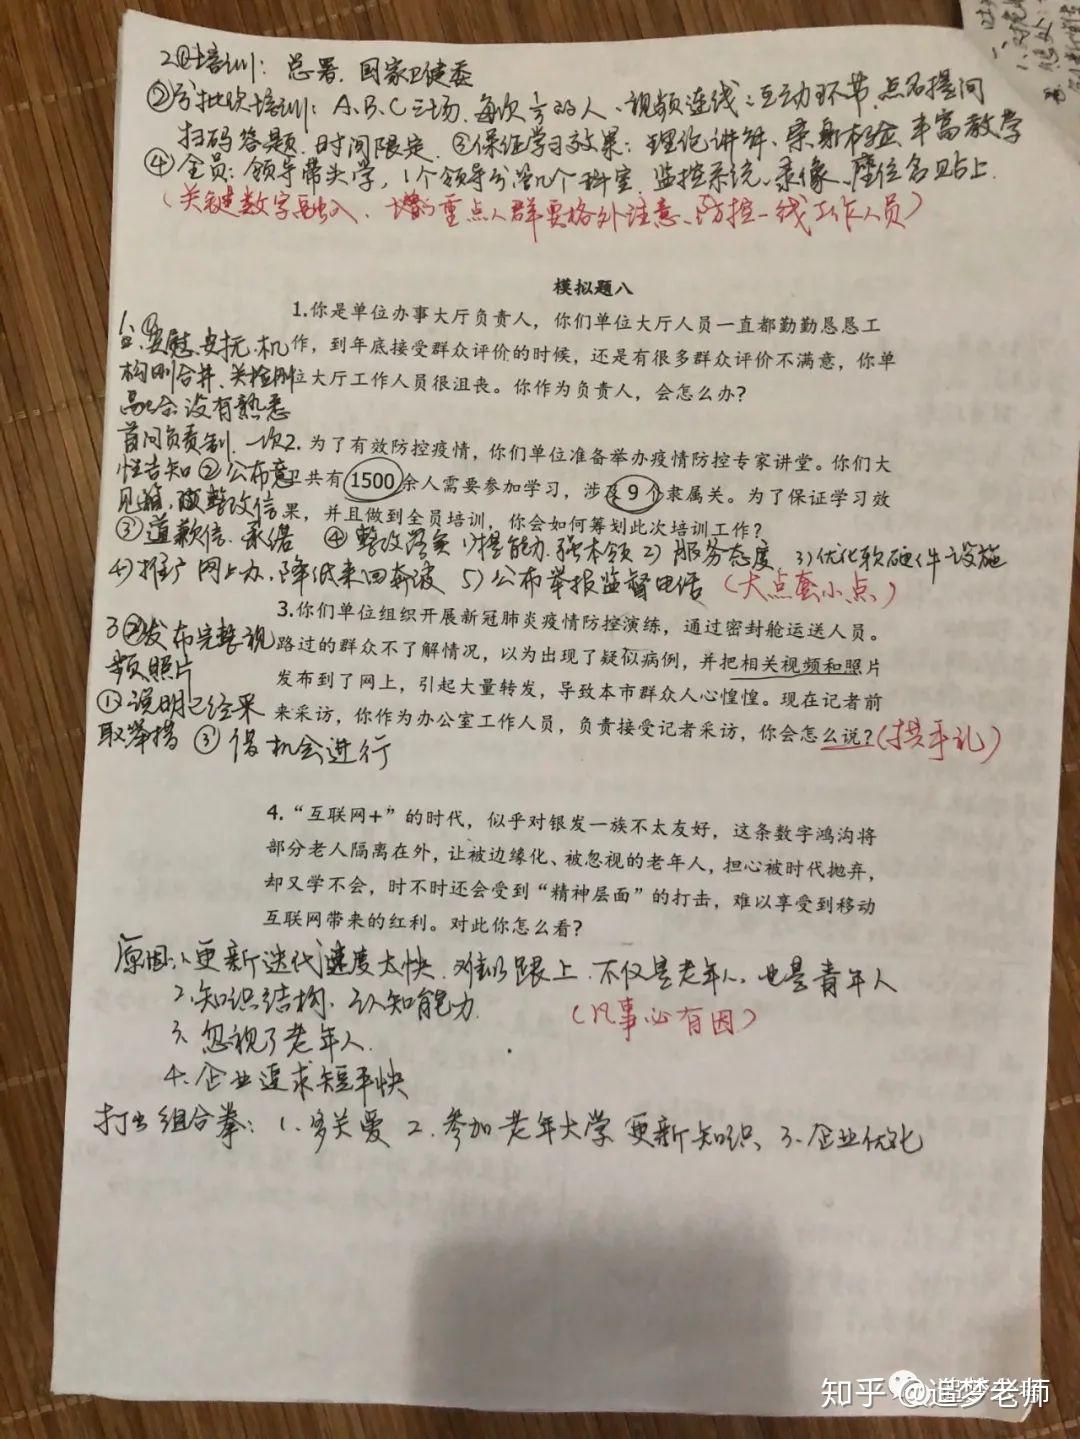 2.①培训：总署、国家卫健委
②分批次培训：A、B、C三场、每次500人、视频连线、互动环节、点名提问
扫码答题、时间限定、③保证学习效果：理论讲解、亲身体验、丰富教学
④全员：领导带头学，1个领导分管几个科室、监控系统、录像、座位名贴上.
（关键数字融入、增加重点人群要格外注意、防控一线工作人员）
模拟题八
1.你是单位办事大厅负责人，你们单位大厅人员一直都勤勤恳恳工
作，到年底接受群众评价的时候，还是有很多群众评价不满意，你单
位大厅工作人员很沮丧。你作为负责人，会怎么办？
1、①安慰、安抚、机
构刚合并、关检刚
融合没有熟悉
首问负责制、一次
性告知②公布意
见箱，整改信
③道歉信、承诺 ④整改落实 1)提能力、强本领 2)服务态度 3)优化软硬件设施
4)推广网上办、降低来回奔波 5)公布举报监督电话（大点套小点）
2.为了有效防控疫情，你们单位准备举办疫情防控专家讲堂。你们大
共有1500余人需要参加学习，涉及9个隶属关。为了保证学习效
果，并且做到全员培训，你会如何筹划此次培训工作？
3.你们单位组织开展新冠肺炎疫情防控演练，通过密封舱运送人员。
路过的群众不了解情况，以为出现了疑似病例，并把相关视频和照片
发布到了网上，引起大量转发，导致本市群众人心惶惶。现在记者前
来采访，你作为办公室工作人员，负责接受记者采访，你会怎么说？（拱手礼）
3②发布完整视
频照片
①说明已经采
取举措 ③借机会进行
4.“互联网+”的时代，似乎对银发一族不太友好，这条数字鸿沟将
部分老人隔离在外，让被边缘化、被忽视的老年人，担心被时代抛弃，
却又学不会，时不时还会受到“精神层面”的打击，难以享受到移动
互联网带来的红利。对此你怎么看？
原因：1、更新迭代速度太快、难以跟上、不仅是老年人，也是青年人
2、知识结构、认知能力.
（凡事必有因）
3、忽视了老年人.
4、企业追求短平快
打出组合拳：1、多关爱 2、参加老年大学更新知识、3、企业优化
知乎 @追梦老师